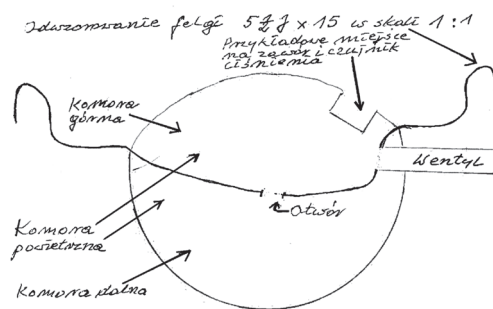 Odwzorowanie felgi 5½ J x 15 w skali 1:1
Przykładowe miejsce
na zawór i czujnik
ciśnienia
Komora
górna
Wentyl
Otwór
Komora
powietrzna
Komora dolna